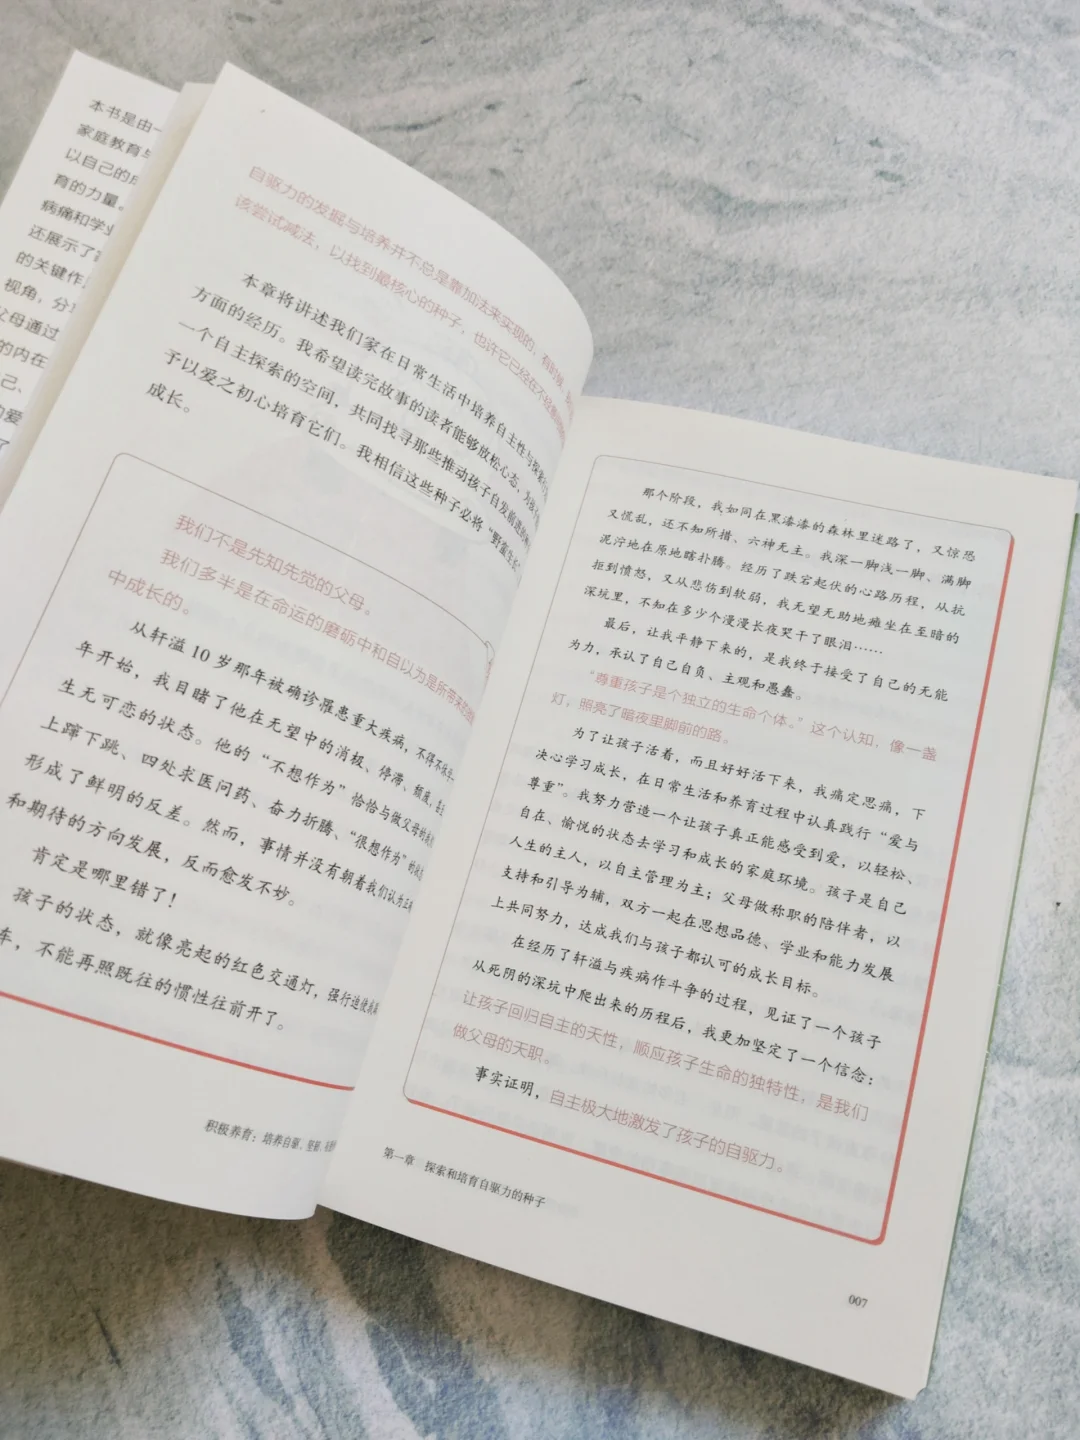 本书是由一
家庭教育与
以自己的成
育的力量。
病痛和学业
还展示了
的关键作
视角，分
父母通过
的内在
己、
的爱
了
自驱力的发掘与培养并不总是靠加法来实现的，有时候，
该尝试减法，以找到最核心的种子，也许它已经在不经意间
本章将讲述我们家在日常生活中培养自主性与探索
方面的经历。我希望读完故事的读者能够放松心态，为孩子
一个自主探索的空间，共同找寻那些推动孩子自发前进的
予以爱之初心培育它们。我相信这些种子必将“野蛮生长”
成长。
我们不是先知先觉的父母。
我们多半是在命运的磨砺中和自以为是所带来的
中成长的。
从轩溢10岁那年被确诊罹患重大疾病，不得不休学
年开始，我目睹了他在无望中的消极、停滞、颓废，
生无可恋的状态。他的“不想作为”恰恰与做父母的我们
上蹿下跳、四处求医问药、奋力折腾、“很想作为”的状态
形成了鲜明的反差。然而，事情并没有朝着我们认为正确
和期待的方向发展，反而愈发不妙。
肯定是哪里错了！
孩子的状态，就像亮起的红色交通灯，强行迫使我
车，不能再照既往的惯性往前开了。
积极养育：培养自驱、坚毅、
那个阶段，我如同在黑漆漆的森林里迷路了，又惊恐
又慌乱，还不知所措、六神无主。我深一脚浅一脚、满脚
泥泞地在原地瞎扑腾。经历了跌宕起伏的心路历程，从抗
拒到愤怒，又从悲伤到软弱，我无望无助地瘫坐在至暗的
深坑里，不知在多少个漫漫长夜哭干了眼泪……
最后，让我平静下来的，是我终于接受了自己的无能
为力，承认了自己自负、主观和愚蠢。
“尊重孩子是个独立的生命个体。”这个认知，像一盏
灯，照亮了暗夜里脚前的路。
为了让孩子活着，而且好好活下来，我痛定思痛，下
决心学习成长，在日常生活和养育过程中认真践行“爱与
尊重”。我努力营造一个让孩子真正能感受到爱，以轻松、
自在、愉悦的状态去学习和成长的家庭环境。孩子是自己
人生的主人，以自主管理为主；父母做称职的陪伴者，以
支持和引导为辅，双方一起在思想品德、学业和能力发展
上共同努力，达成我们与孩子都认可的成长目标。
在经历了轩溢与疾病作斗争的过程，见证了一个孩子
从死阴的深坑中爬出来的历程后，我更加坚定了一个信念：
让孩子回归自主的天性，顺应孩子生命的独特性，是我们
做父母的天职。
事实证明，自主极大地激发了孩子的自驱力。
第一章 探索和培育自驱力的种子
007